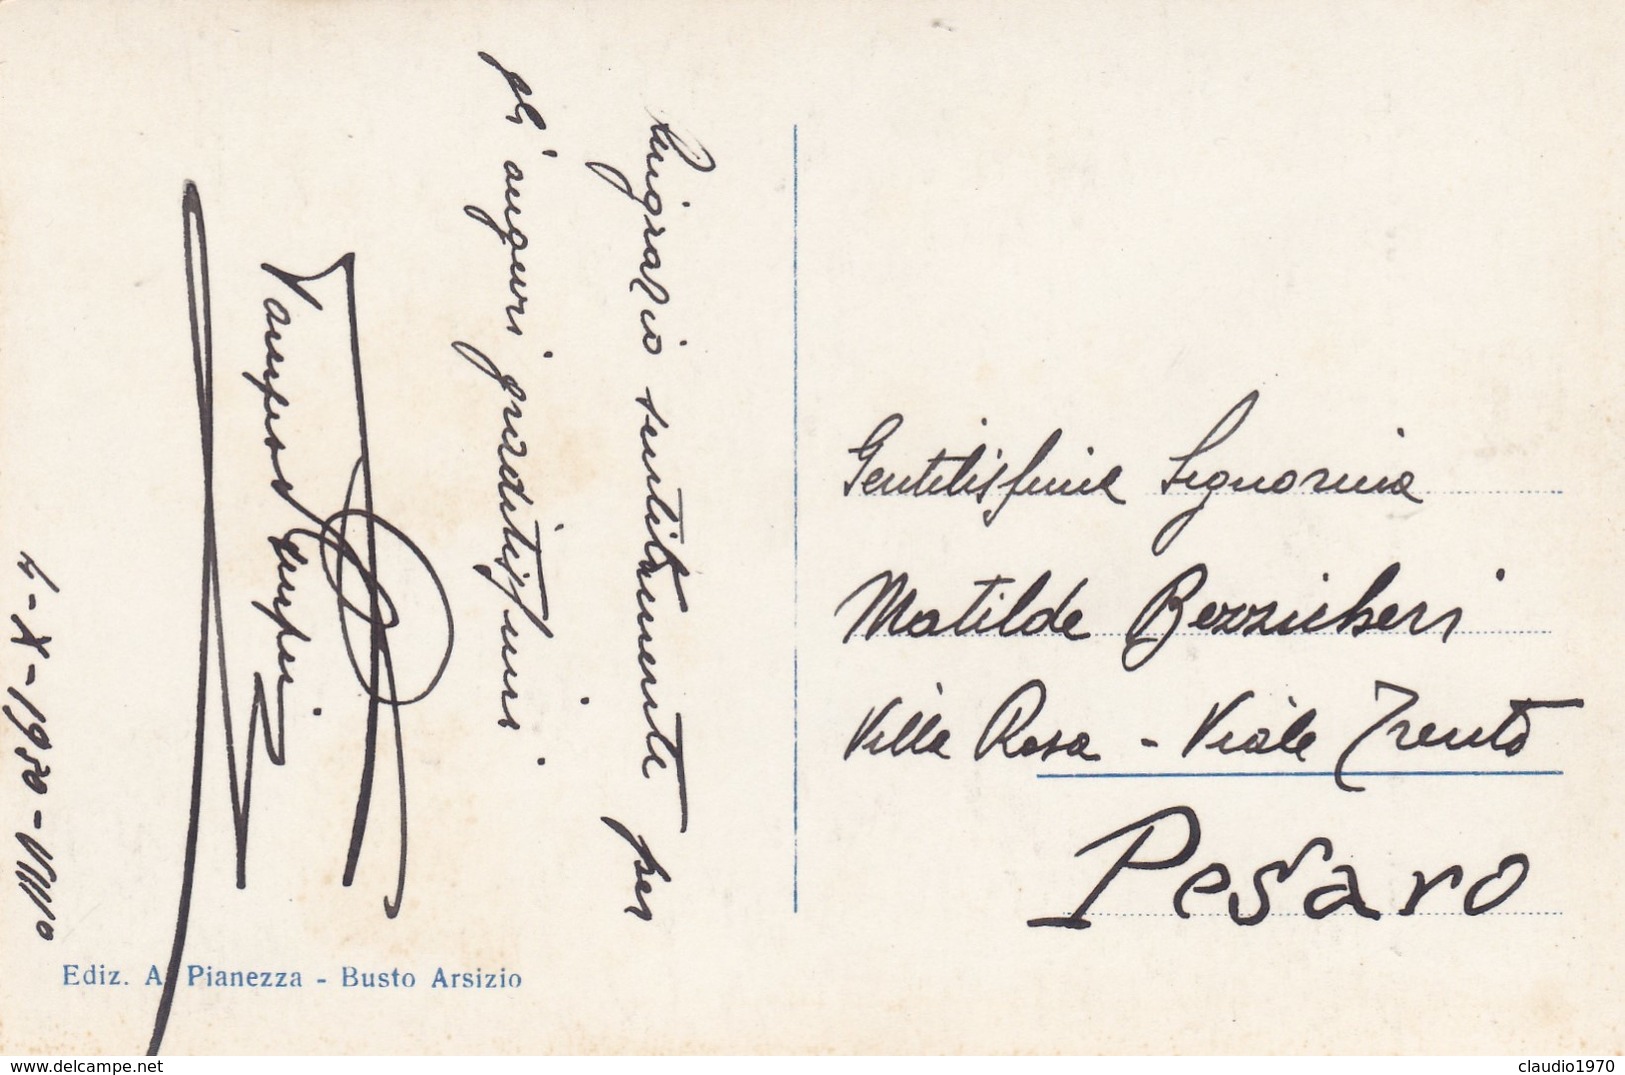 Ringrazio sentitamente per
gli auguri graditissimi
4-X-1930-VIII°
Gentilissima Signorina
Matilde Bezzicheri
Villa Rosa - Viale Trento
Pesaro
Ediz. A. Pianezza - Busto Arsizio
www.delcampe.net
claudio1970